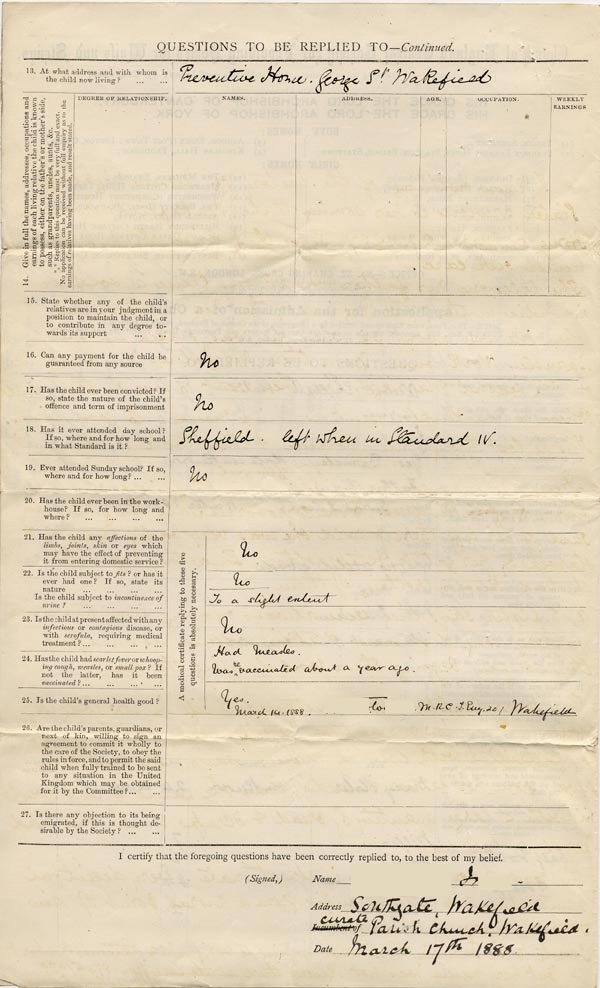 QUESTIONS TO BE REPLIED TO—Continued.
13. At what address and with whom is
the child now living? ... ...
Preventive Home. George St Wakefield
14. Give in full the names, addresses, occupations and
earnings of each living relative the child is known
to possess, either on the father's or mother's side,
such as grandparents, uncles, aunts, &c.
*** Replies to this question must be very full and exact.
No application can be received without full enquiry as to the
earnings of relatives having been made, and result stated.
DEGREE OF RELATIONSHIP.
NAMES.
ADDRESS.
AGE.
OCCUPATION.
WEEKLY
EARNINGS
15. State whether any of the child's
relatives are in your judgment in a
position to maintain the child, or
to contribute in any degree to-
wards its support ... ...
16. Can any payment for the child be
guaranteed from any source
No
17. Has the child ever been convicted? If
so, state the nature of the child's
offence and term of imprisonment
No
18. Has it ever attended day school?
If so, where and for how long and
in what Standard is it? ...
Sheffield. left when in Standard IV.
19. Ever attended Sunday school? If so,
where and for how long? ... ...
No
20. Has the child ever been in the work-
house? If so, for how long and
where? ... ... ... ...
A medical certificate replying to these five
questions is absolutely necessary.
21. Has the child any affections of the
limbs, joints, skin or eyes which
may have the effect of preventing
it from entering domestic service?
No
22. Is the child subject to fits? or has it
ever had one? If so, state its
nature ... ... ... ...
No
Is the child subject to incontinence of
urine? ... ... ... ...
To a slight extent
23. Is the child at present affected with any
infectious or contagious disease, or
with scrofula, requiring medical
treatment? ... ... ...
No
24. Has the child had scarlet fever or whoop-
ing cough, measles, or small pox? If
not the latter, has it been
vaccinated? ... ... ...
Had Measles.
Was re vaccinated about a year ago.
25. Is the child's general health good?
Yes.
March 14. 1888. Wakefield
26. Are the child's parents, guardians, or
next of kin, willing to sign an
agreement to commit it wholly to
the care of the Society, to obey the
rules in force, and to permit the said
child when fully trained to be sent
to any situation in the United
Kingdom which may be obtained
for it by the Committee? ... ...
27. Is there any objection to its being
emigrated, if this is thought de-
sirable by the Society? ... ...
I certify that the foregoing questions have been correctly replied to, to the best of my belief.
(Signed,) Name
Address Southgate, Wakefield
curate
Incumbent of Parish Church, Wakefield.
Date March 17th 1888